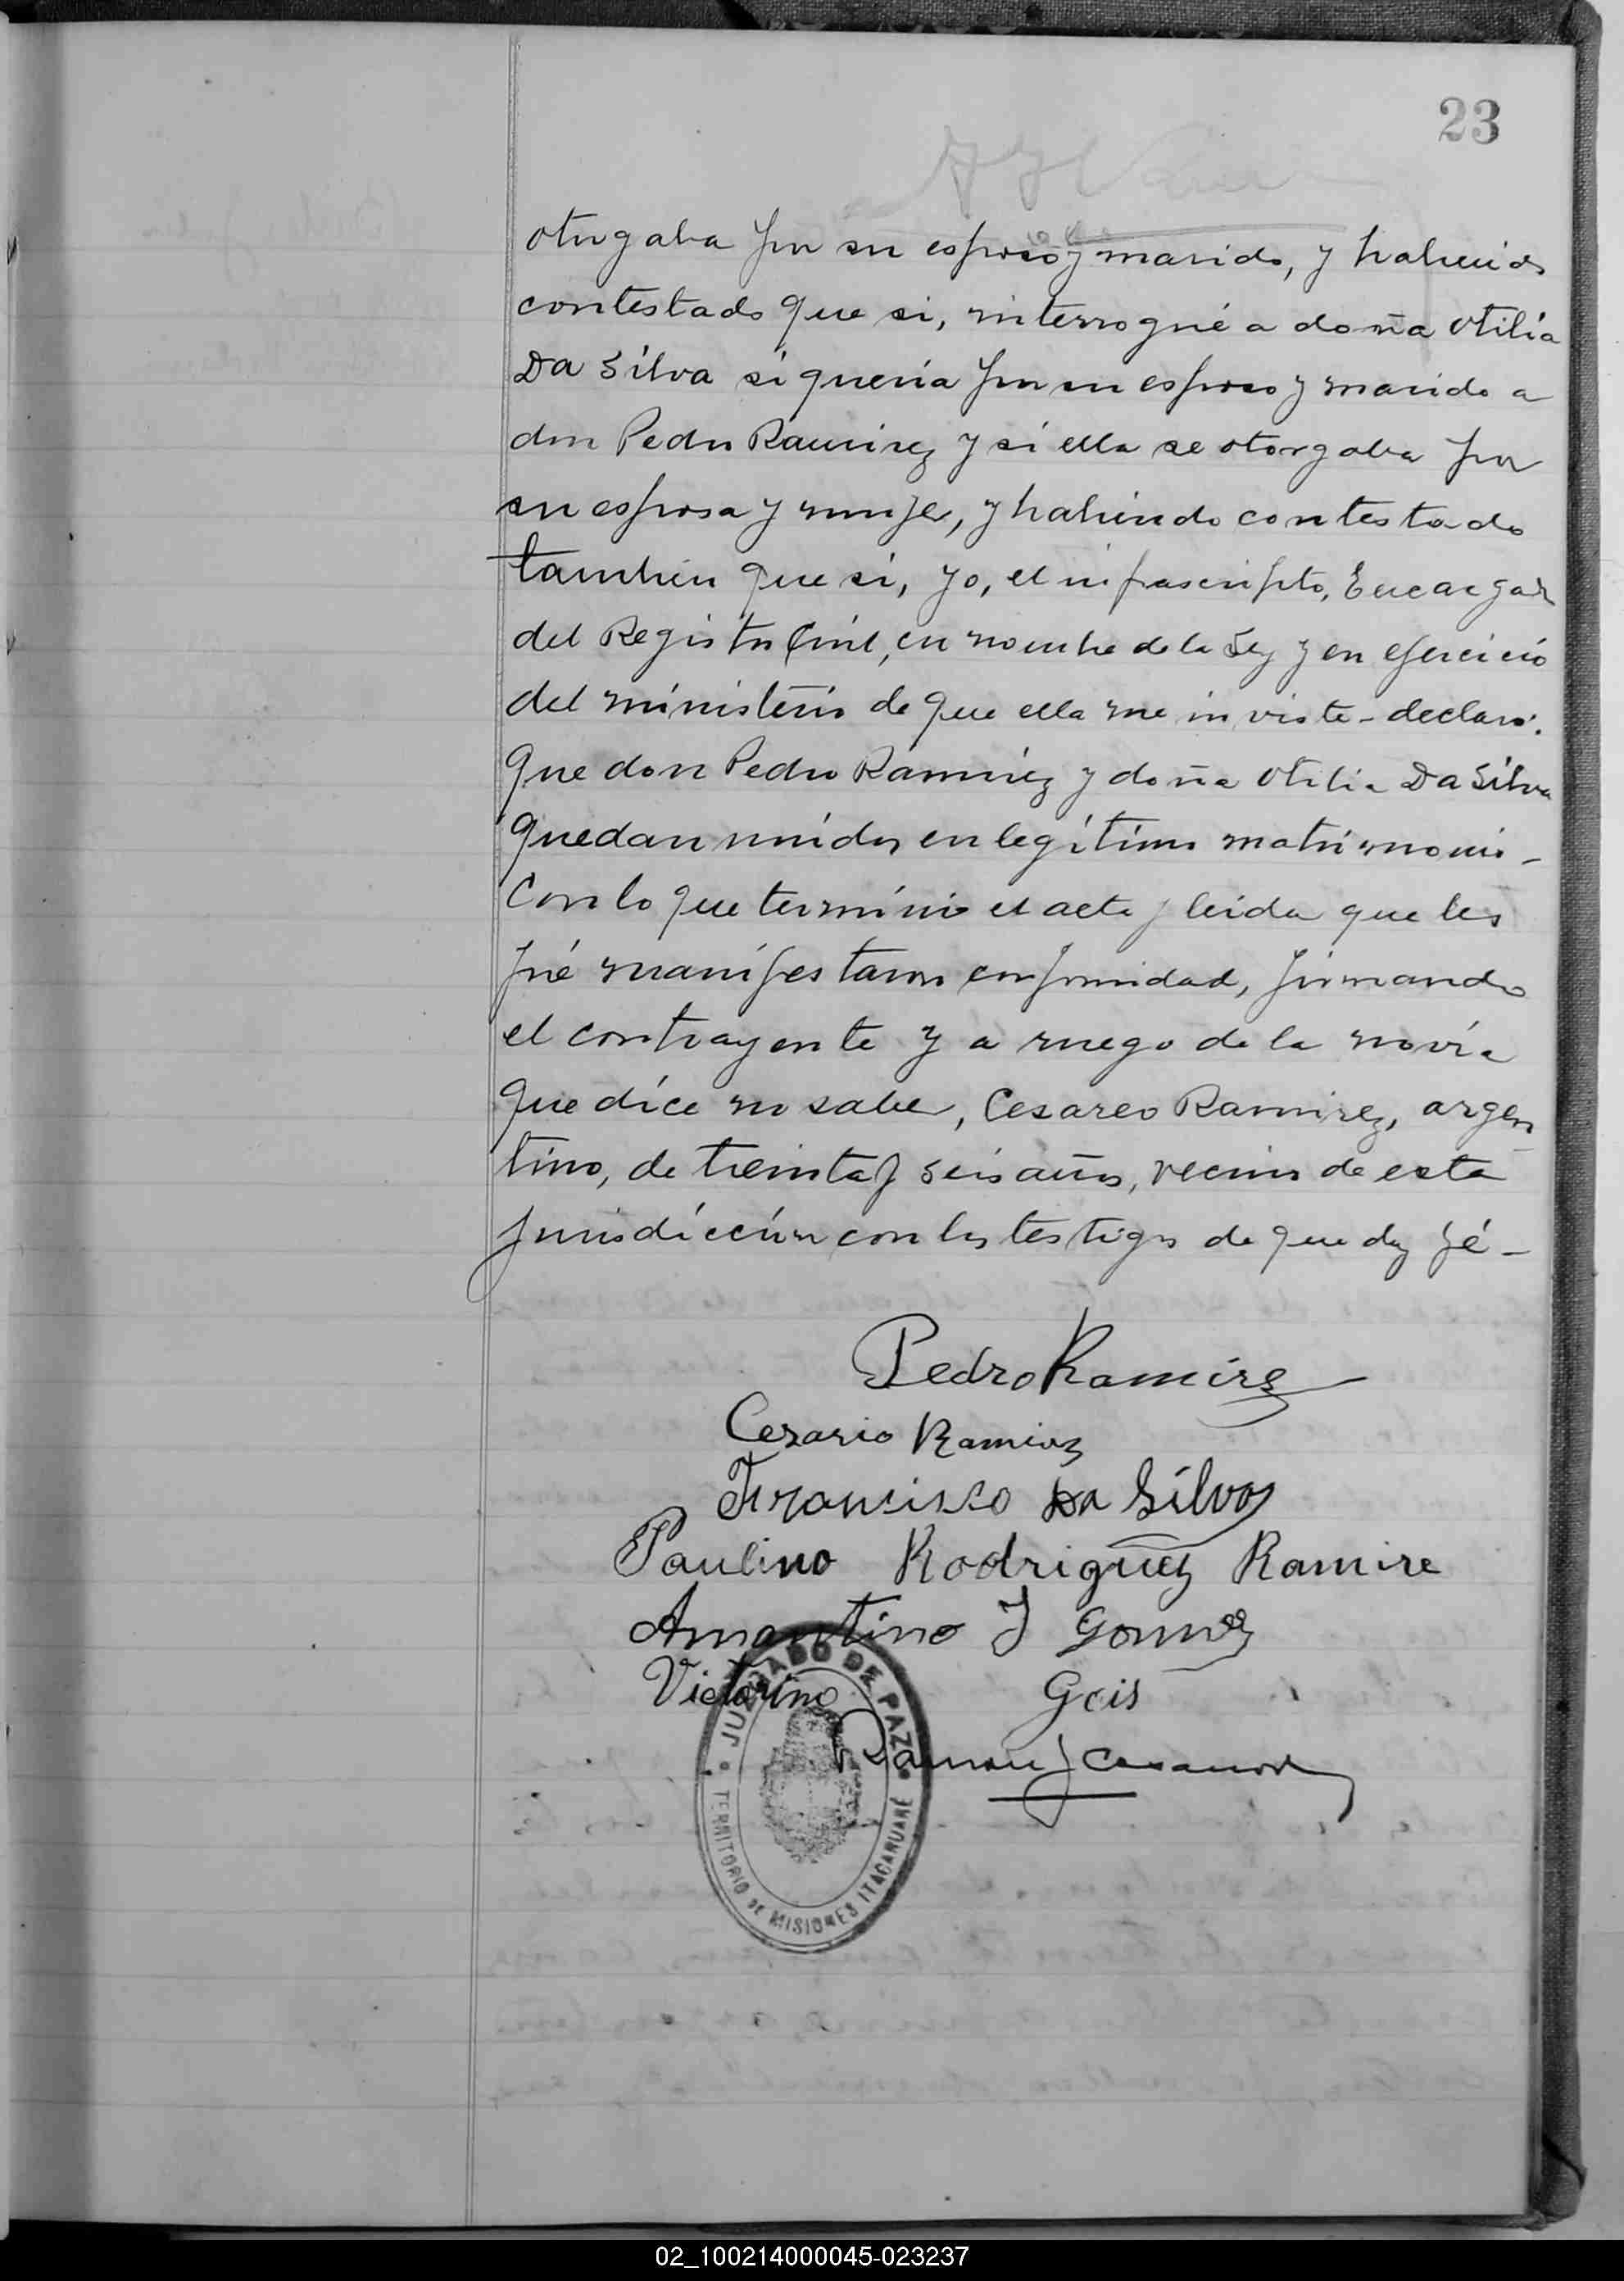 23
otorgaba por su esposo y marido, y habiendo
contestado que si, interrogué a doña Otilia
Da Silva si queria por su esposo y marido a
don Pedro Ramirez y si ella se otorgaba por
su esposa y mujer, y habiendo contestado
tambien que si, yo, el infrascripto, Encargado
del Registro Civil, en nombre de la Ley y en ejercicio
del ministerio de que ella me inviste - declaro:
Que don Pedro Ramirez y doña Otilia Da Silva
quedan unidos en legítimo matrimonio -
Con lo que terminó el acta y leida que les
fué manifestaron conformidad, firmando
el contrayente y a ruego de la novia
que dice no saber, Cesareo Ramirez, argen
tino, de treinta y seis años, vecino de esta
jurisdicción con los testigos de que doy fé -
Pedro Ramirez
Cezario Ramirez
Francisco Da Silva
Paulino Rodriguez Ramire
Amantino J Gomez
Victorino Geis
Ramon J Casanova
JUZGADO DE PAZ
TERRITORIO DE MISIONES ITACARUARÉ
02_100214000045-023237